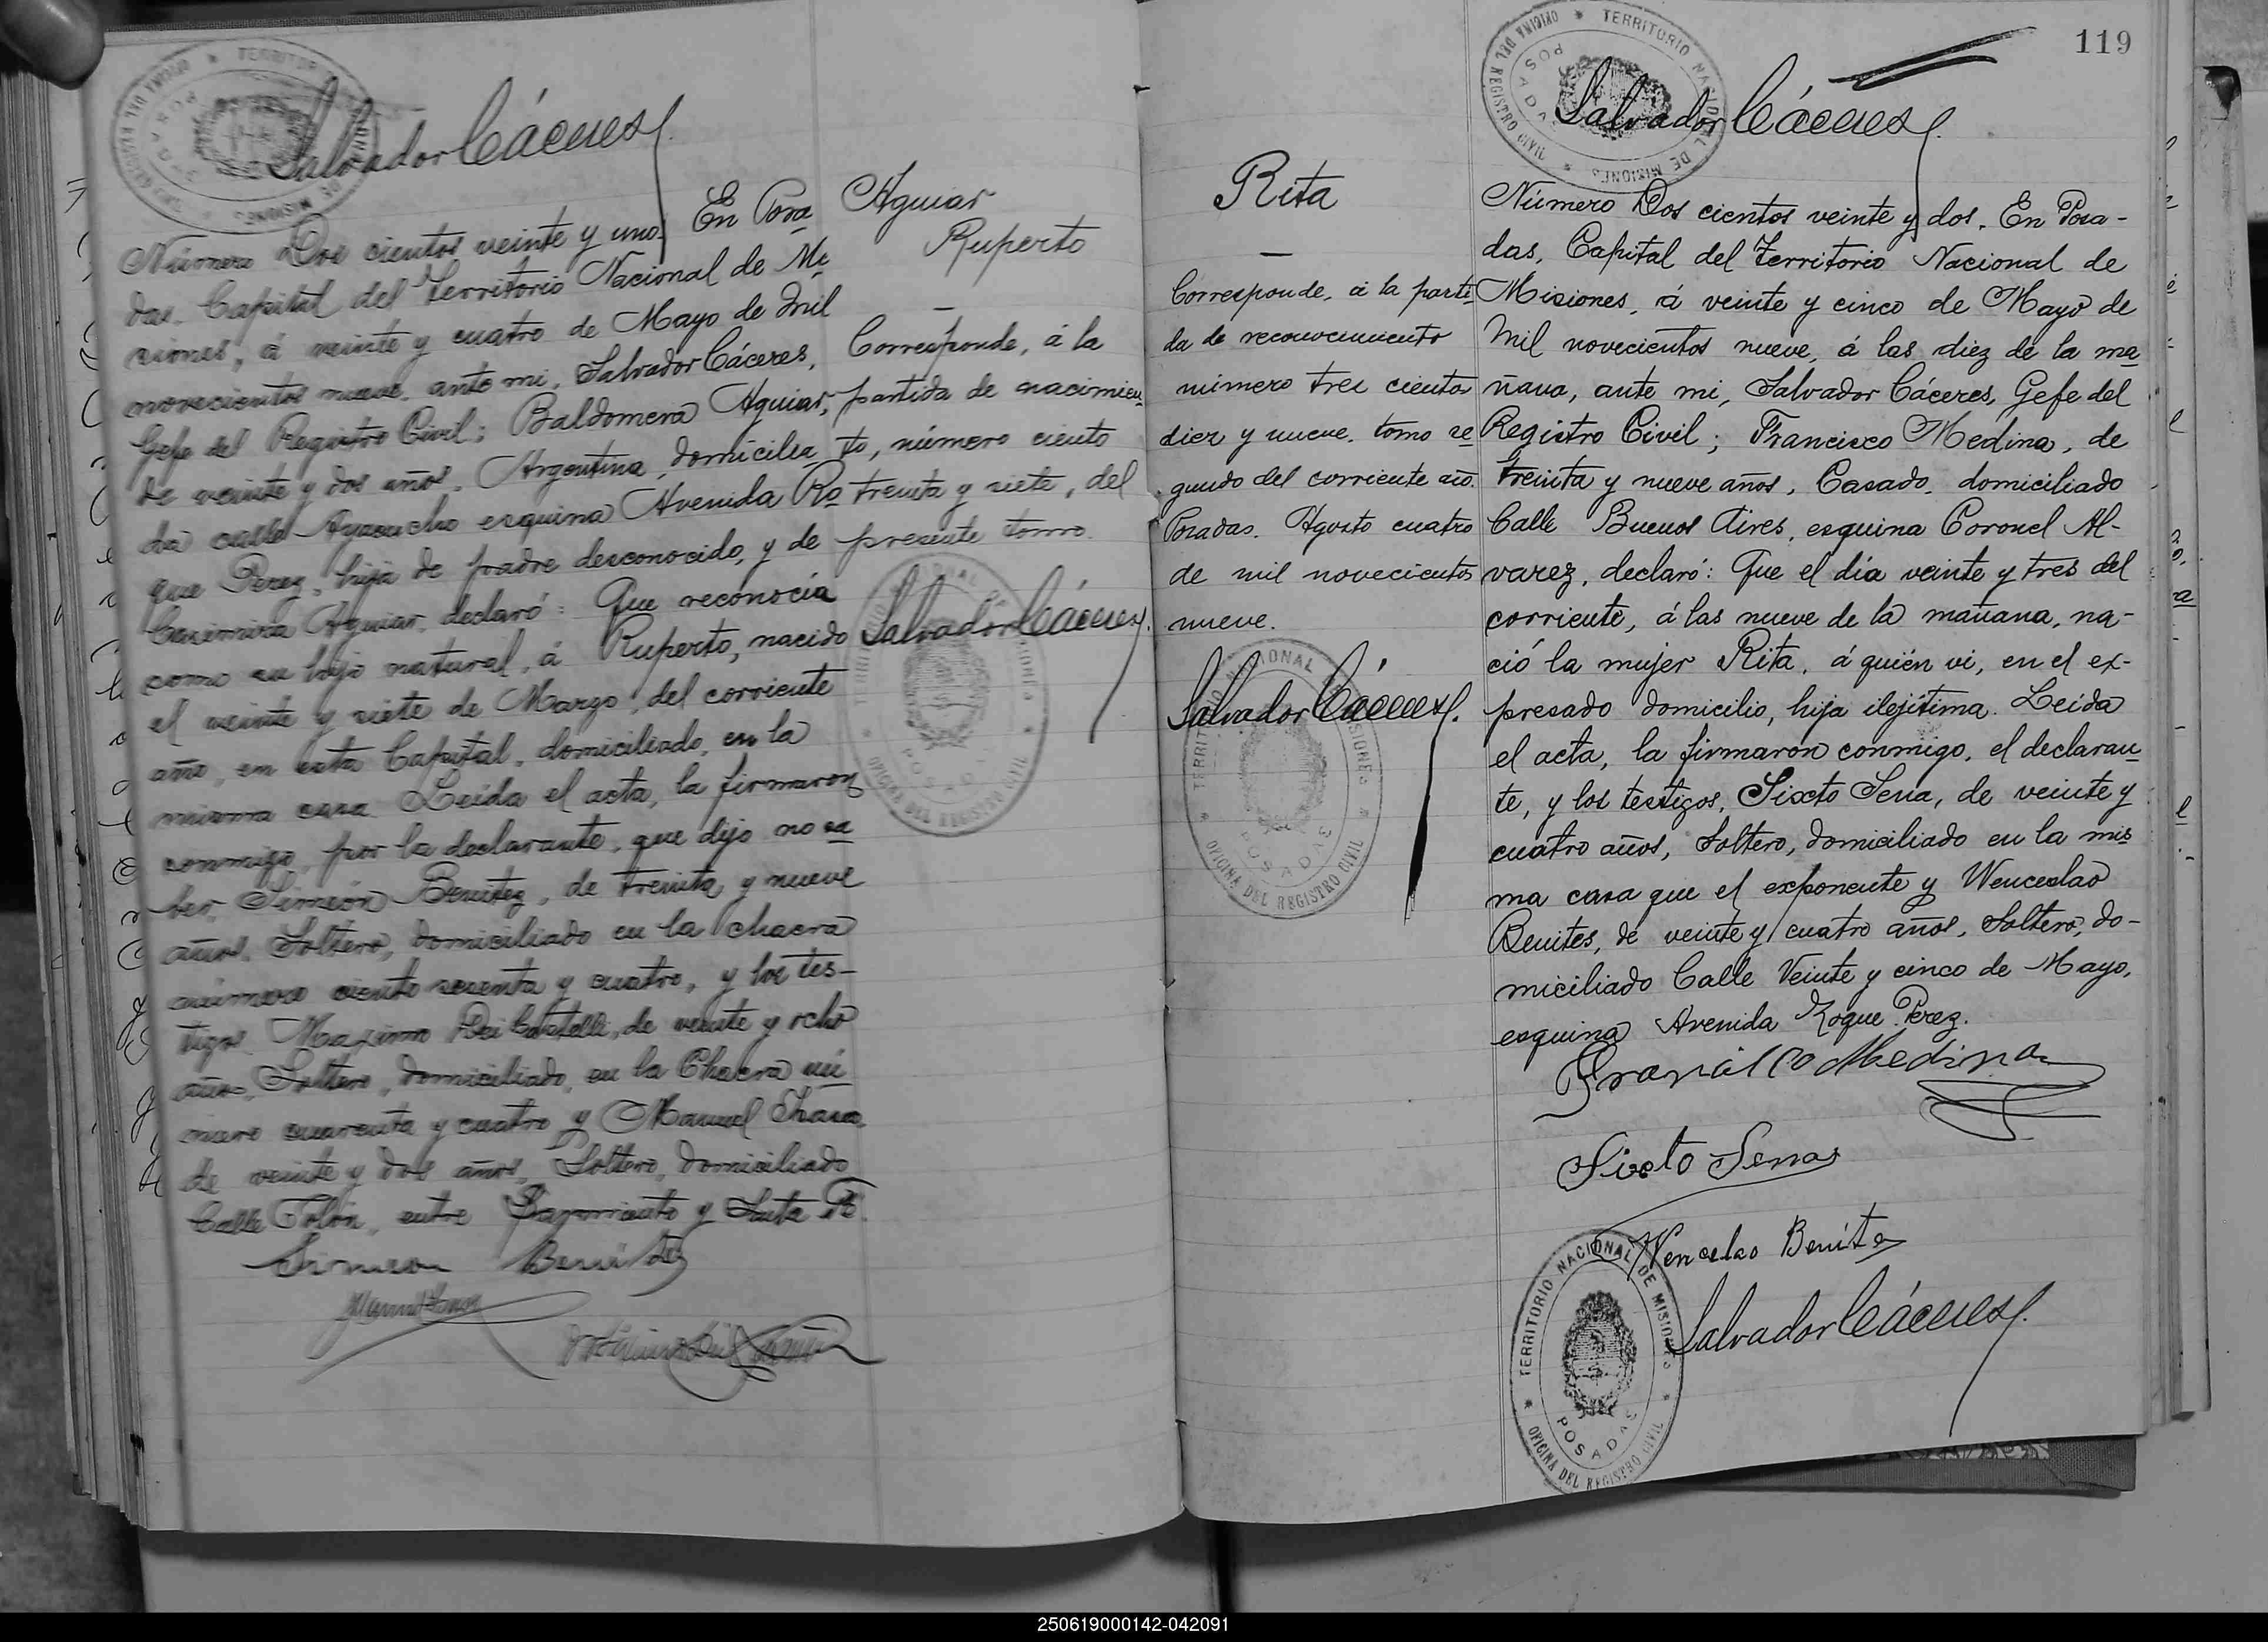 Salvador Cáceres
Número Dos cientos veinte y uno. En Posa
das. Capital del Territorio Nacional de Mi
siones, á veinte y cuatro de Mayo de mil
novecientos nueve, ante mi, Salvador Cáceres,
Gefe del Registro Civil; Baldomera Aguiar,
de veinte y dos años, Argentina, domicilia
da calle Ayacucho esquina Avenida Ro
que Perez, hija de padre desconocido, y de
Casimira Aguiar, declaró: Que reconocía
como su hijo natural, á Ruperto, nacido
el veinte y siete de Marzo, del corriente
año, en esta Capital, domiciliado, en la
misma casa. Leida el acta, la firmaron
conmigo, por la declarante, que dijo no sa
ber, Simeón Benitez, de treinta y nueve
años, Soltero, domiciliado en la chacra
número ciento sesenta y cuatro, y los tes-
tigos Maximo Dei Castelli, de veinte y ocho
años, Soltero, domiciliado, en la Chacra nú
mero cuarenta y cuatro y Manuel
de veinte y dos años, Soltero, domiciliado
Calle Colón, entre Sarmiento y Santa Fé.
Simeon Benitez
Aguiar
Ruperto
Corresponde, á la
partida de nacimien
to, número ciento
treinta y siete, del
presente tomo.
Salvador Cáceres
TERRITORIO NACIONAL DE MISIONES
OFICINA DEL REGISTRO CIVIL
POSADAS
119
Rita
Corresponde, á la parti
da de reconocimiento
número tres cientos
diez y nueve, tomo se
gundo del corriente año.
Posadas. Agosto cuatro
de mil novecientos
nueve.
Salvador Cáceres
TERRITORIO NACIONAL DE MISIONES
OFICINA DEL REGISTRO CIVIL
POSADAS
TERRITORIO NACIONAL DE MISIONES
OFICINA DEL REGISTRO CIVIL
POSADAS
Salvador Cáceres
Número Dos cientos veinte y dos. En Posa-
das, Capital del Territorio Nacional de
Misiones, á veinte y cinco de Mayo de
Mil novecientos nueve, á las diez de la ma
ñana, ante mi, Salvador Cáceres, Gefe del
Registro Civil; Francisco Medina, de
treinta y nueve años, Casado, domiciliado
Calle Buenos Aires, esquina Coronel Al-
varez, declaró: Que el día veinte y tres del
corriente, á las nueve de la mañana, na-
ció la mujer Rita, á quién vi, en el ex-
presado domicilio, hija ilejítima. Leída
el acta, la firmaron conmigo, el declaran
te, y los testigos, Sixto Sena, de veinte y
cuatro años, Soltero, domiciliado en la mis
ma casa que el exponente y Wenceslao
Benites, de veinte y cuatro años, Soltero, do-
miciliado Calle Veinte y cinco de Mayo,
esquina Avenida Roque Perez.
Francisco Medina
Sixto Senas
Wencelao Benites
Salvador Cáceres
TERRITORIO NACIONAL DE MISIONES
OFICINA DEL REGISTRO CIVIL
POSADAS
250619000142-042091